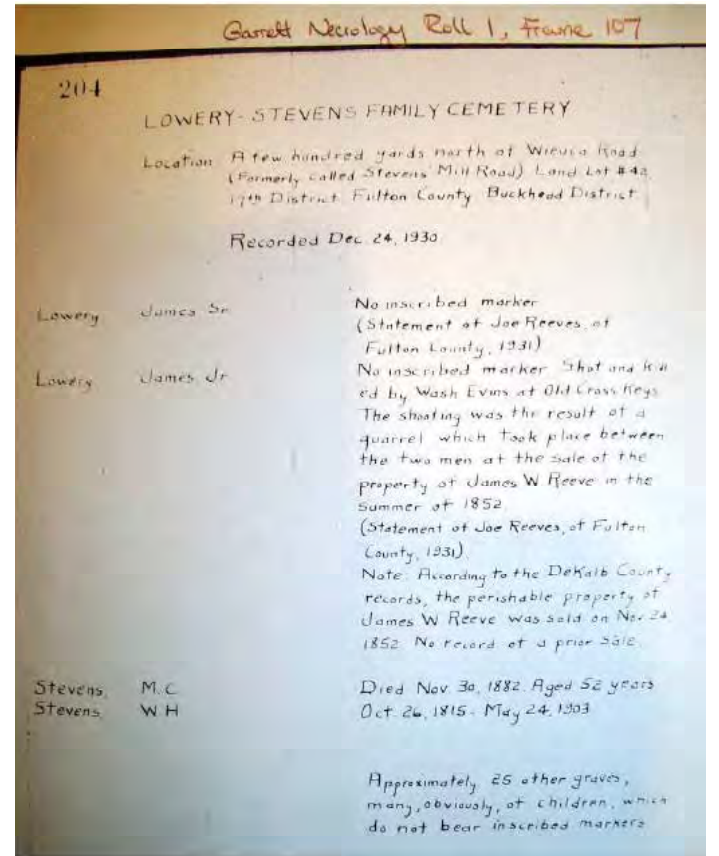 Garrett Necrology Roll 1, Frame 107
204
LOWERY-STEVENS FAMILY CEMETERY
Location A few hundred yards north of Wieuca Road
(Formerly called Stevens' Mill Road) Land Lot #42
17th District Fulton County Buckhead District
Recorded Dec. 24, 1930
Lowery James Sr No inscribed marker
(Statement of Joe Reeves, of
Fulton County, 1931)
Lowery James Jr No inscribed marker Shot and kill
ed by Wash Evins at Old Cross Keys
The shooting was the result of a
quarrel which took place between
the two men at the sale of the
property of James W Reeve in the
Summer of 1852
(Statement of Joe Reeves, of Fulton
County, 1931)
Note: According to the DeKalb County
records, the perishable property of
James W Reeve was sold on Nov 24,
1852 No record of a prior sale.
Stevens, M. C Died Nov. 30, 1882. Aged 52 years
Stevens W H Oct. 26, 1815 - May 24, 1903
Approximately 25 other graves,
many, obviously, of children, which
do not bear inscribed markers